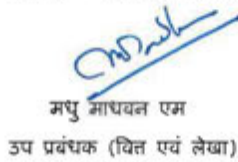 मधु माधवन एम
उप प्रबंधक (वित्त एवं लेखा)